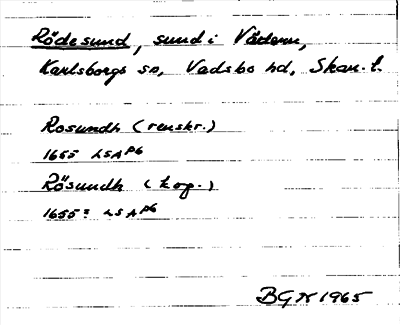 Rödesund, sund i Vättern,
Karlsborgs sn, Vadsbo hd, Skar. l.
Rosundh (renskr.)
1655 LSA P6
Rösundh (kop.)
1655: LSA P6
BGN 1965